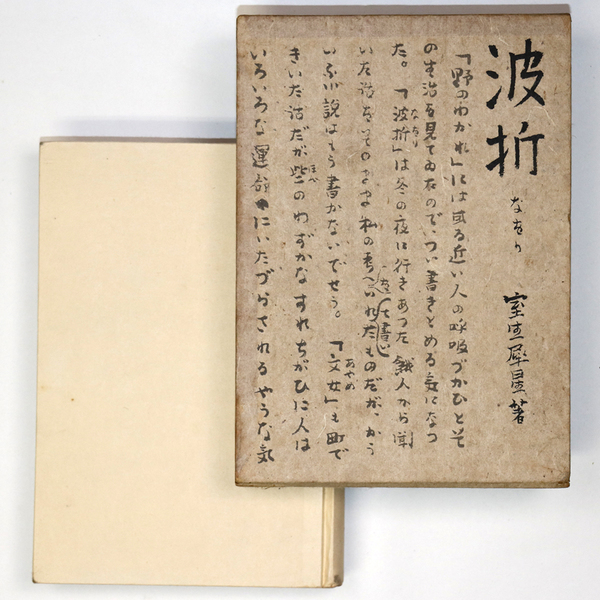 波折
なをり
室生犀星著
「野のわかれ」には或る近い人の呼吸づかひとそ
の生活を見てゐたのでつい書きとめる気になつ
た。「波折」は冬の夜に行きあつた 人から聞
なをり
いた話をそのまま私の
書いたものだが、かう
いふ小説はもう書かないでせう。「文女」も町で
あやめ
きいた話だが些のわずかなすれちがひに人は
ほべ
いろいろな運命にいたづらされるやうな気